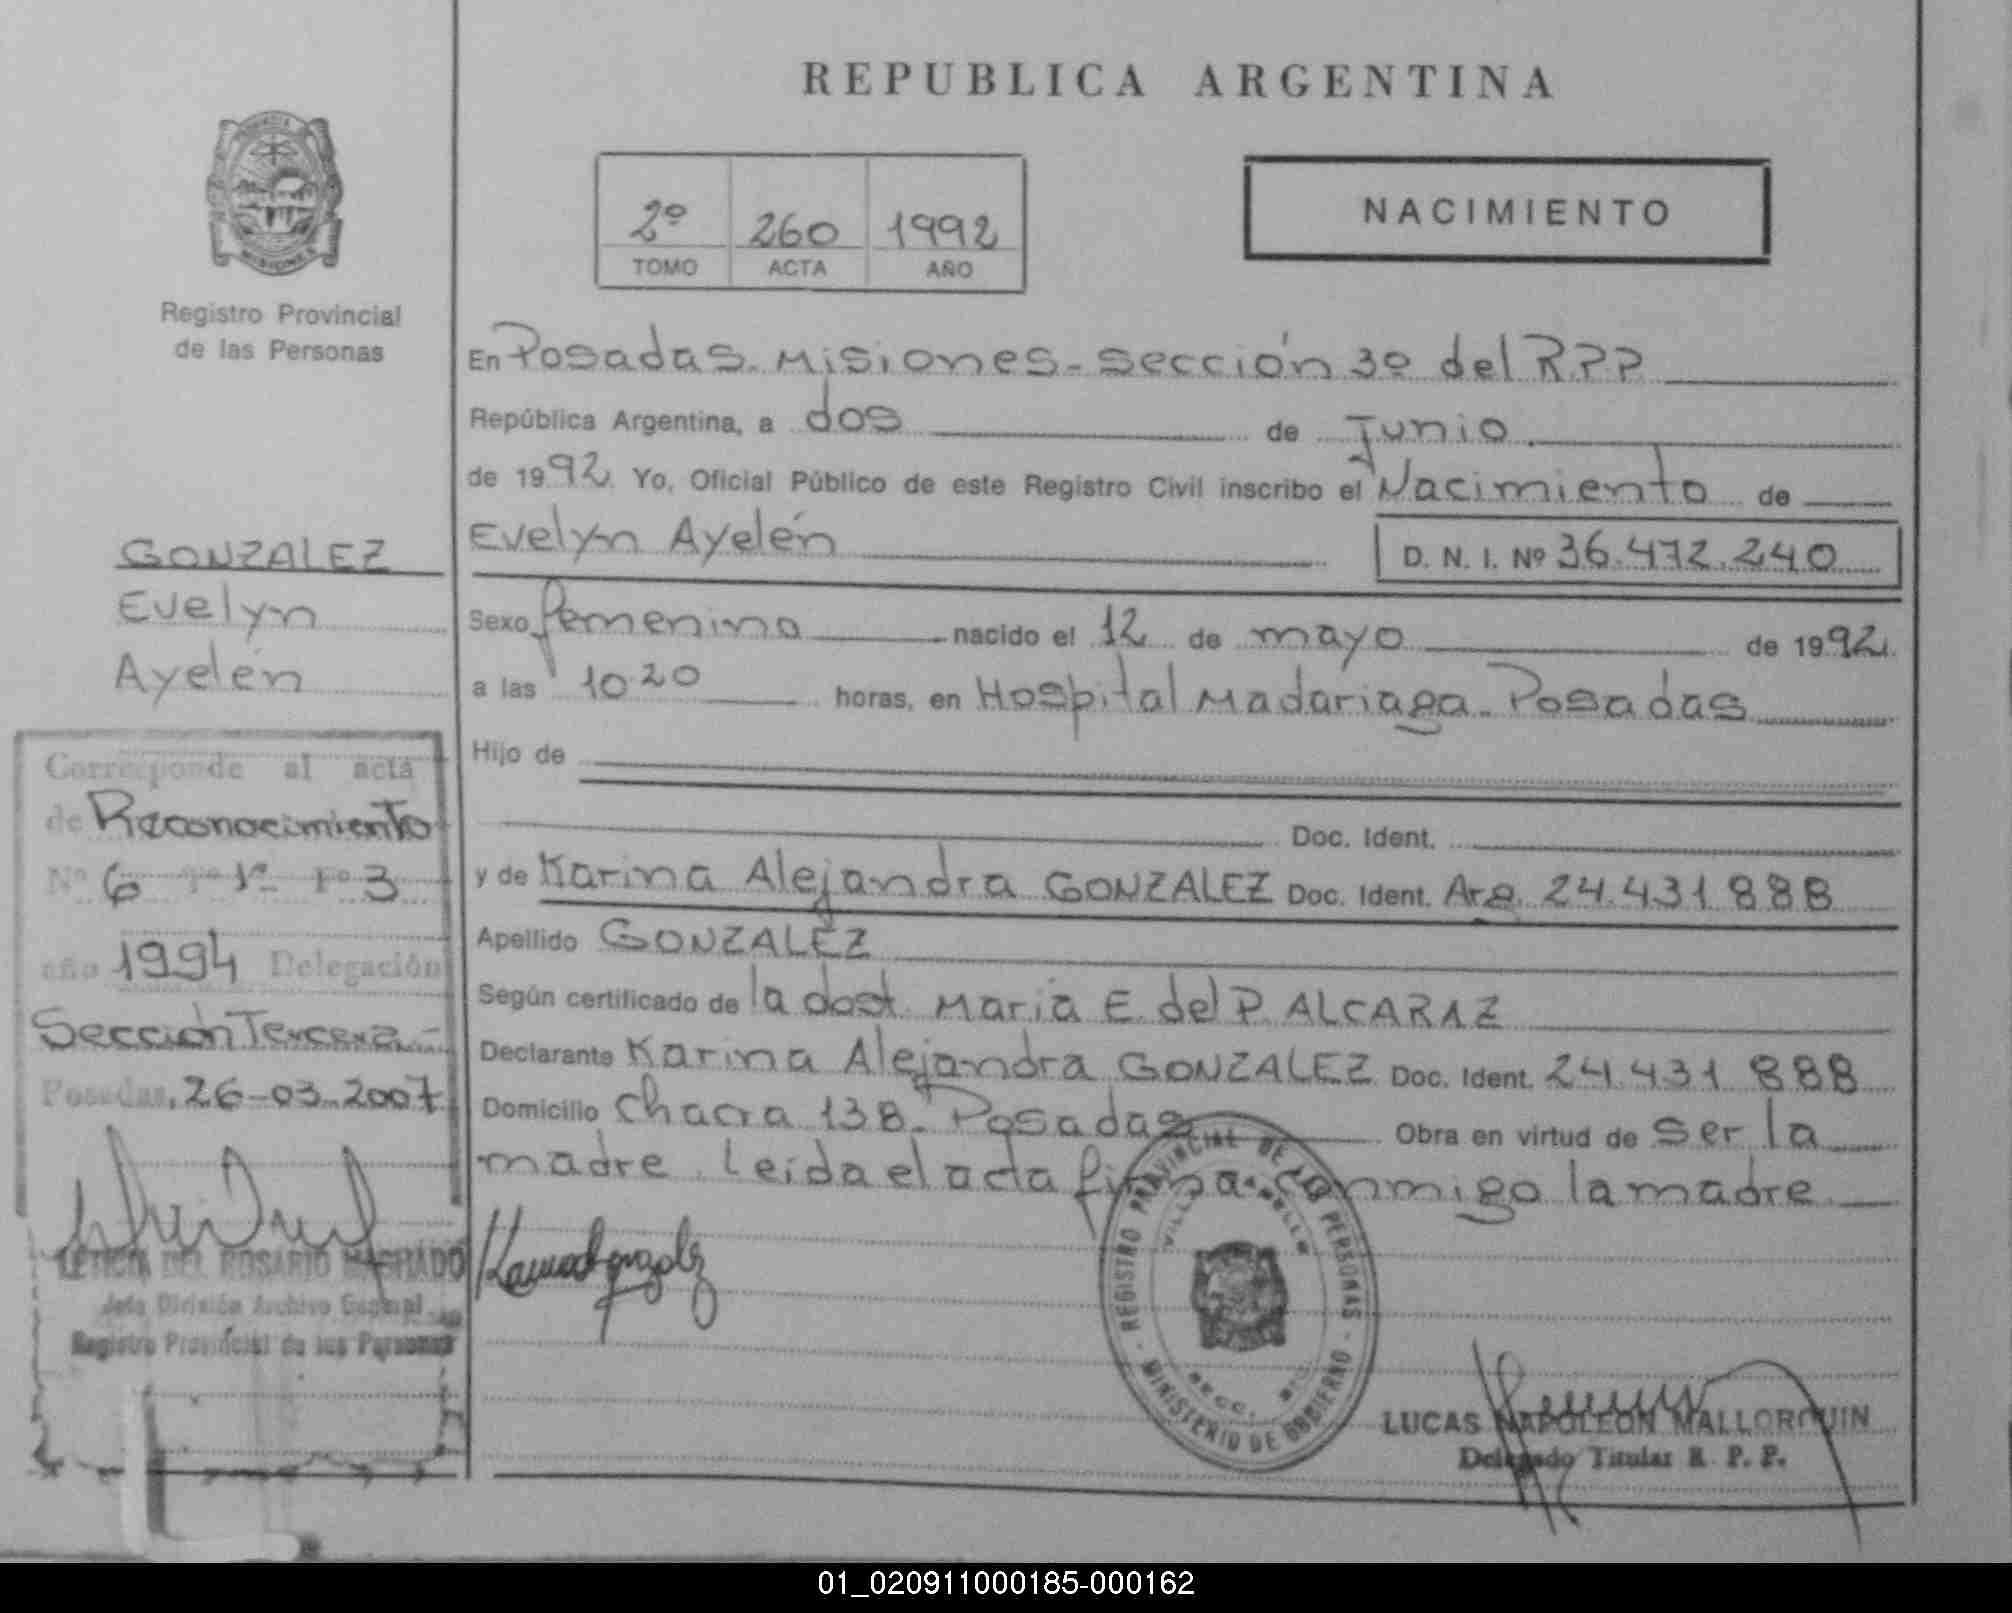 REPUBLICA ARGENTINA
2º 260 1992
TOMO ACTA AÑO
NACIMIENTO
MISIONES
Registro Provincial
de las Personas
GONZALEZ
Evelyn
Ayelén
Corresponde al acta
de Reconocimiento
Nº 6 Tº 1º Fº 3
año 1994 Delegación
Sección Tercera
Posadas, 26-03-2007
LETICIA DEL ROSARIO MACHADO
Jefa División Archivo General
Registro Provincial de las Personas
En Posadas. Misiones. Sección 3º del R.P.P
República Argentina, a dos de Junio
de 1992. Yo, Oficial Público de este Registro Civil inscribo el Nacimiento de
Evelyn Ayelén D. N. I. Nº 36.472.240
Sexo femenino nacido el 12 de mayo de 1992.
a las 10.20 horas, en Hospital Madariaga. Posadas
Hijo de
Doc. Ident.
y de Karina Alejandra GONZALEZ Doc. Ident. Arg. 24.431.888
Apellido GONZALEZ
Según certificado de la doct. Maria E. del P. ALCARAZ
Declarante Karina Alejandra GONZALEZ Doc. Ident. 24.431.888
Domicilio Chacra 138. Posadas Obra en virtud de ser la
madre. Leída el acta firma conmigo la madre
REGISTRO PROVINCIAL DE LAS PERSONAS
MINISTERIO DE GOBIERNO
LUCAS NAPOLEON MALLORQUIN
Delegado Titular R. P. P.
01_020911000185-000162